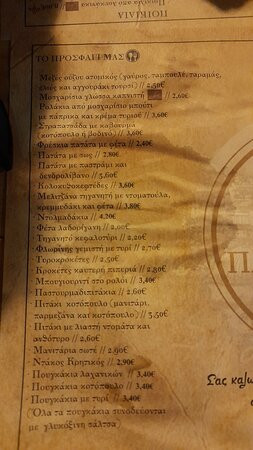 ΠΟΙΚΙΛΙΑ
ΤΟ ΠΡΟΣΦΑΓΙ ΜΑΣ
Μεζές ούζου ατομικός (γαύρος, ταμπουλέ, ταραμάς,
ελιές και αγγουράκι τουρσί) // 2,50€
Μοσχαρίσια γλώσσα καπνιστή // 2,60€
Ρολάκια από μοσχαρίσιο μπούτι
με πάπρικα και κρέμα τυριού // 3,60€
Στραπατσάδα με καβουρμά
(κοτόπουλο ή βοδινό) // 3,60€
Φρέσκια πατάτα με φέτα // 2,40€
Πατάτα με σως // 2,80€
Πατάτα με παστράμι και
δενδρολίβανο // 3,60€
Κολοκυθοκεφτέδες // 3,60€
Μελιτζάνα τηγανητή με ντοματούλα,
κρεμμυδάκι και φέτα // 3,80€
Ντολμαδάκια // 4,20€
Φέτα λαδορίγανη // 2,00€
Τηγανητό κεφαλοτύρι // 2,20€
Φλωρίνης γεμιστή με τυρί // 2,70€
Τυροκροκέτες // 2,50€
Κροκέτες καυτερή πιπεριά // 2,80€
Μπουγιουρντί στο ρολόι // 3,40€
Παστουρμαδοπιτάκια // 2,60€
Πιτάκι κοτόπουλο (μανιτάρι,
παρμεζάνα και κοτόπουλο) // 3,50€
Πιτάκι με λιαστή ντομάτα και
ανθότυρο // 2,60€
Μανιτάρια σωτέ // 2,90€
Ντάκος Κρητικός // 2,90€
Πουγκάκια λαχανικών // 3,40€
Πουγκάκια κοτόπουλο // 3,40€
Πουγκάκια με τυρί // 3,40€
(Όλα τα πουγκάκια συνοδεύονται
με γλυκόξινη σάλτσα
Σας καλω